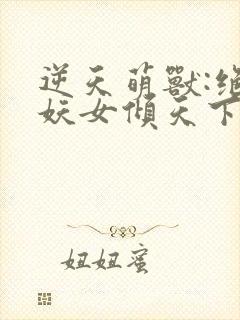 逆天萌獸:絕
妖女傾天下
妞妞蜜